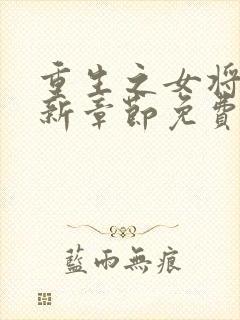 重生之女将
新章節免費
藍雨無痕